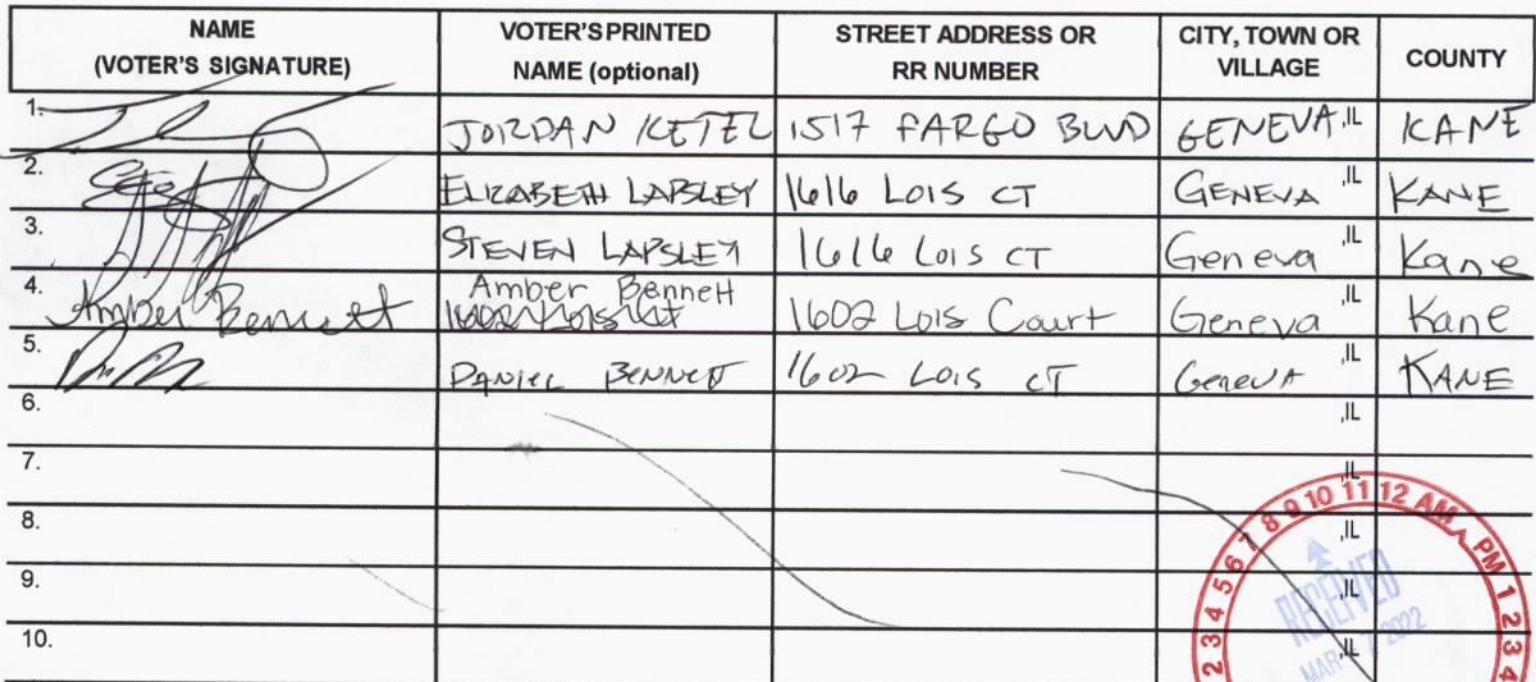 NAME VOTER'S PRINTED STREET ADDRESS OR CITY, TOWN OR COUNTY
(VOTER'S SIGNATURE) NAME (optional) RR NUMBER VILLAGE
1. JORDAN KETEL 1517 FARGO BLVD GENEVA ,IL KANE
2. ELIZABETH LAPSLEY 1616 LOIS CT GENEVA ,IL KANE
3. STEVEN LAPSLEY 1616 LOIS CT Geneva ,IL Kane
4. Amber Bennett Amber Bennett 1602 Lois Court Geneva ,IL Kane
5. DANIEL BENNETT 1602 LOIS CT Geneva ,IL KANE
6. ,IL
7. ,IL
8. ,IL
9. ,IL
10. ,IL
2 3 4 5 6 7 8 9 10 11 12 AM PM 1 2 3 4
RECEIVED
MAR 7 2022